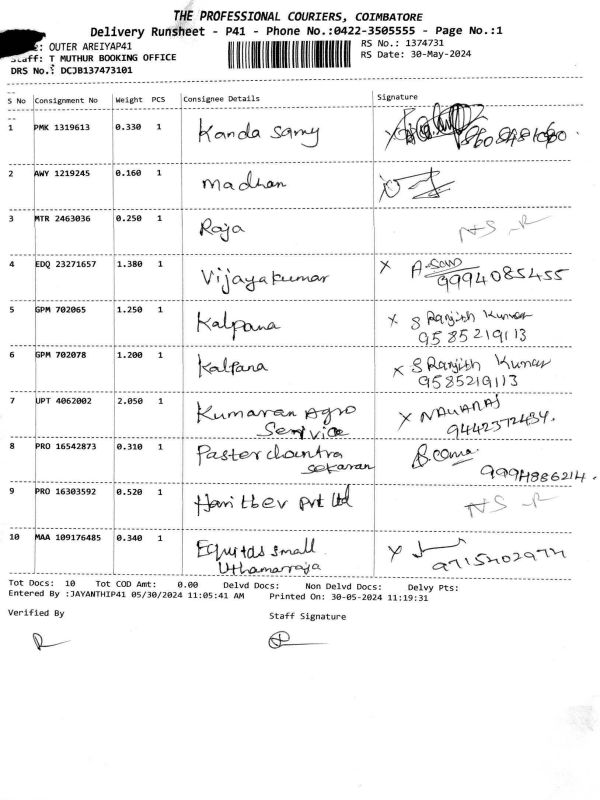 THE PROFESSIONAL COURIERS, COIMBATORE
Delivery Runsheet - P41 - Phone No.:0422-3505555 - Page No.:1
: OUTER AREIYAP41
RS No.: 1374731
Staff: T MUTHUR BOOKING OFFICE
RS Date: 30-May-2024
DRS No.: DCJB137473101
S No Consignment No Weight PCS Consignee Details Signature
1 PMK 1319613 0.330 1 Kanda Samy X
2 AWY 1219245 0.160 1 Madhan X
3 MTR 2463036 0.250 1 Raja NS -R
4 EDQ 23271657 1.380 1 Vijayakumar X
9994085455
5 GPM 702065 1.250 1 Kalpana X S Ranjith Kumar
9585219113
6 GPM 702078 1.200 1 Kalpana X S Ranjith Kumar
9585219113
7 UPT 4062002 2.050 1 Kumaran Agro X
Service 9442372434.
8 PRO 16542873 0.310 1 Paster chantra
sekaran 9994886214.
9 PRO 16303592 0.520 1 Pvt Ltd NS -R
10 MAA 109176485 0.340 1 Equitas small X
Uthamarraja
Tot Docs: 10 Tot COD Amt: 0.00 Delvd Docs: Non Delvd Docs: Delvy Pts:
Entered By :JAYANTHIP41 05/30/2024 11:05:41 AM Printed On: 30-05-2024 11:19:31
Verified By Staff Signature